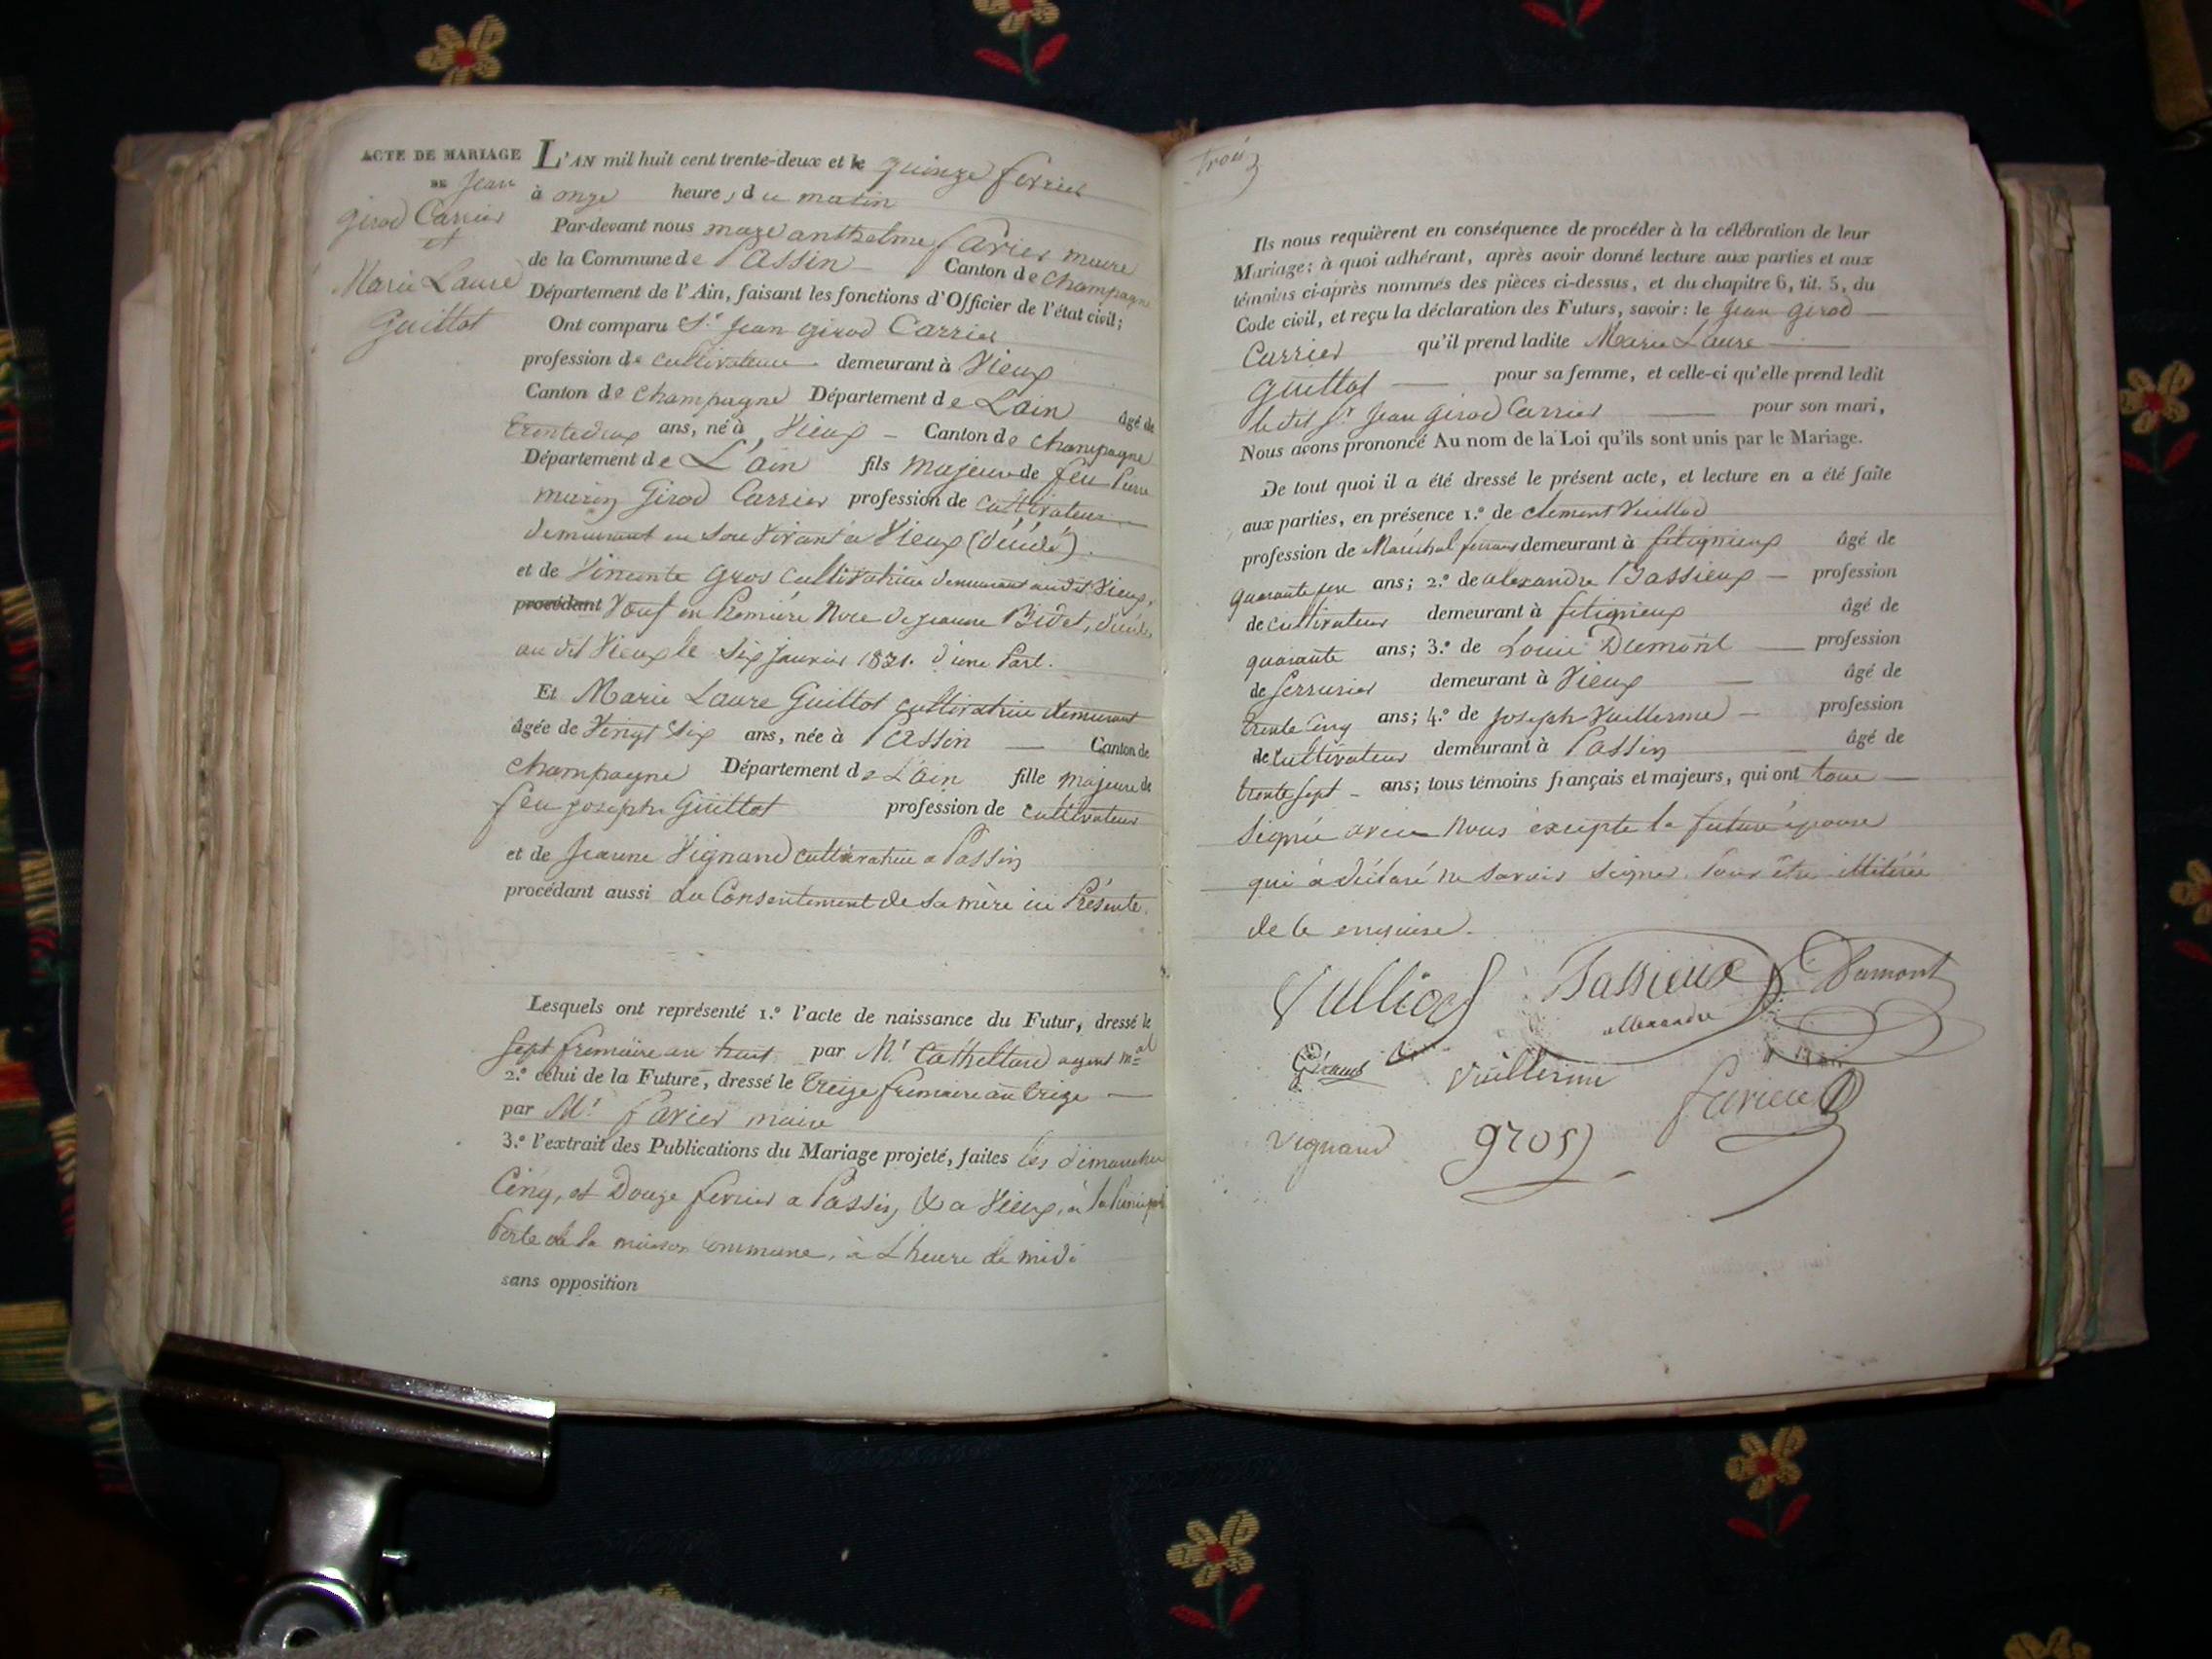 ACTE DE MARIAGE
DE Jean
Girod Carrier
et
Marie Laure
Guillot
L'AN mil huit cent trente-deux et le quinze fevrier
à onze heures du matin
Par-devant nous marc anthelme favier maire
de la Commune de Passin Canton de champagne
Département de l'Ain, faisant les fonctions d'Officier de l'état civil;
Ont comparu Sr Jean Girod Carrier
profession de cultivateur demeurant à Vieux
Canton de champagne Département de L'ain âgé de
trente deux ans, né à Vieux - Canton de champagne
Département de L'ain fils majeur de feu Pierre
marin Girod Carrier profession de cultivateur
demeurant en son vivant a Vieux (décédé).
et de Vincente Gros cultivatrice demeurant audit Vieux,
procédant Veuf en Première Noce de jeanne Bidet, décédée
au dit Vieux le six janvier 1831. d'une Part.
Et Marie Laure Guillot cultivatrice demeurant
âgée de Vingt six ans, née à Passin — Canton de
champagne Département de L'ain fille majeure de
feu joseph Guillot profession de cultivateur
et de Jeanne Vignand cultivatrice a Passin
procédant aussi du Consentement de sa mère ici Présente.
Lesquels ont représenté 1.º l'acte de naissance du Futur, dressé le
sept frimaire an huit par Mr agent mal
2.º celui de la Future, dressé le treize frimaire an treize —
par Mr favier maire
3.º l'extrait des Publications du Mariage projeté, faites les dimanches
Cinq, et Douze fevrier a Passin, & a Vieux, à la Principale
Porte de la maison Commune, à L'heure de midi
sans opposition
trois
Ils nous requièrent en conséquence de procéder à la célébration de leur
Mariage; à quoi adhérant, après avoir donné lecture aux parties et aux
témoins ci-après nommés des pièces ci-dessus, et du chapitre 6, tit. 5, du
Code civil, et reçu la déclaration des Futurs, savoir: le Jean girod —
Carrier qu'il prend ladite Marie Laure —
Guillot — pour sa femme, et celle-ci qu'elle prend ledit
le dit Sr Jean Girod Carrier — pour son mari,
Nous avons prononcé Au nom de la Loi qu'ils sont unis par le Mariage.
De tout quoi il a été dressé le présent acte, et lecture en a été faite
aux parties, en présence 1.º de clément Vuillod
profession de Maréchal ferrant demeurant à fitignieux âgé de
quarante ans; 2.º de alexandre Bassieux — profession
de cultivateur demeurant à fitignieux âgé de
quarante ans; 3.º de Louis Dumont — profession
de serrurier demeurant à Vieux — âgé de
trente Cinq ans; 4.º de joseph Vuillerme — profession
de cultivateur demeurant à Passin — âgé de
trente sept - ans; tous témoins français et majeurs, qui ont tous —
signé avec Nous excepté la future épouse
qui a déclaré ne savoir signer Pour être illitérée
de ce enquise.
Vulliod Bassieux Dumont
allexandre
Giraud Vuillerme
favier
vignand gros